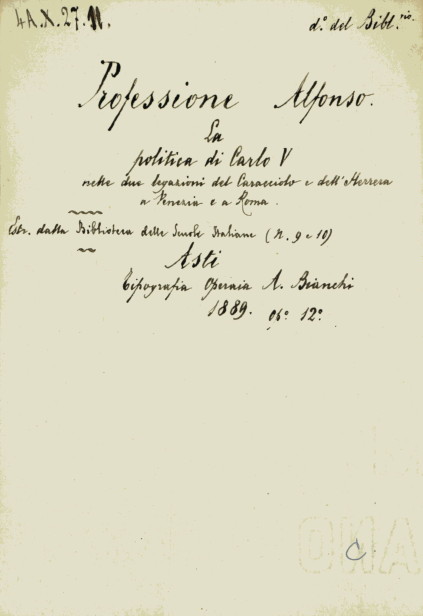 4A.X.27.11.
d.° del Bibl.rio.
Professione Alfonso.
La
politica di Carlo V
nelle due legazioni del Caracciolo e dell'Herrera
a Venezia e a Roma.
Estr. dalla Biblioteca delle Scuole Italiane (N. 9 e 10)
Asti
Tipografia Operaia A. Bianchi
1889. op.° 12.°
C.